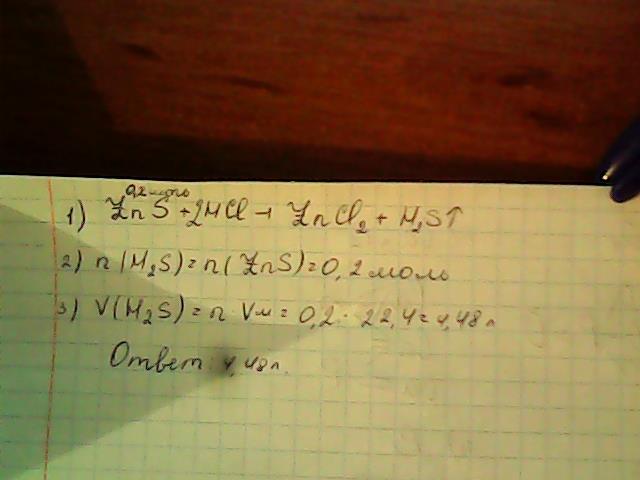 0,2 моль
1) ZnS + 2HCl → ZnCl₂ + H₂S↑
2) n(H₂S) = n(ZnS) = 0,2 моль
3) V(H₂S) = n · Vм = 0,2 · 22,4 = 4,48 л
Ответ: 4,48 л.